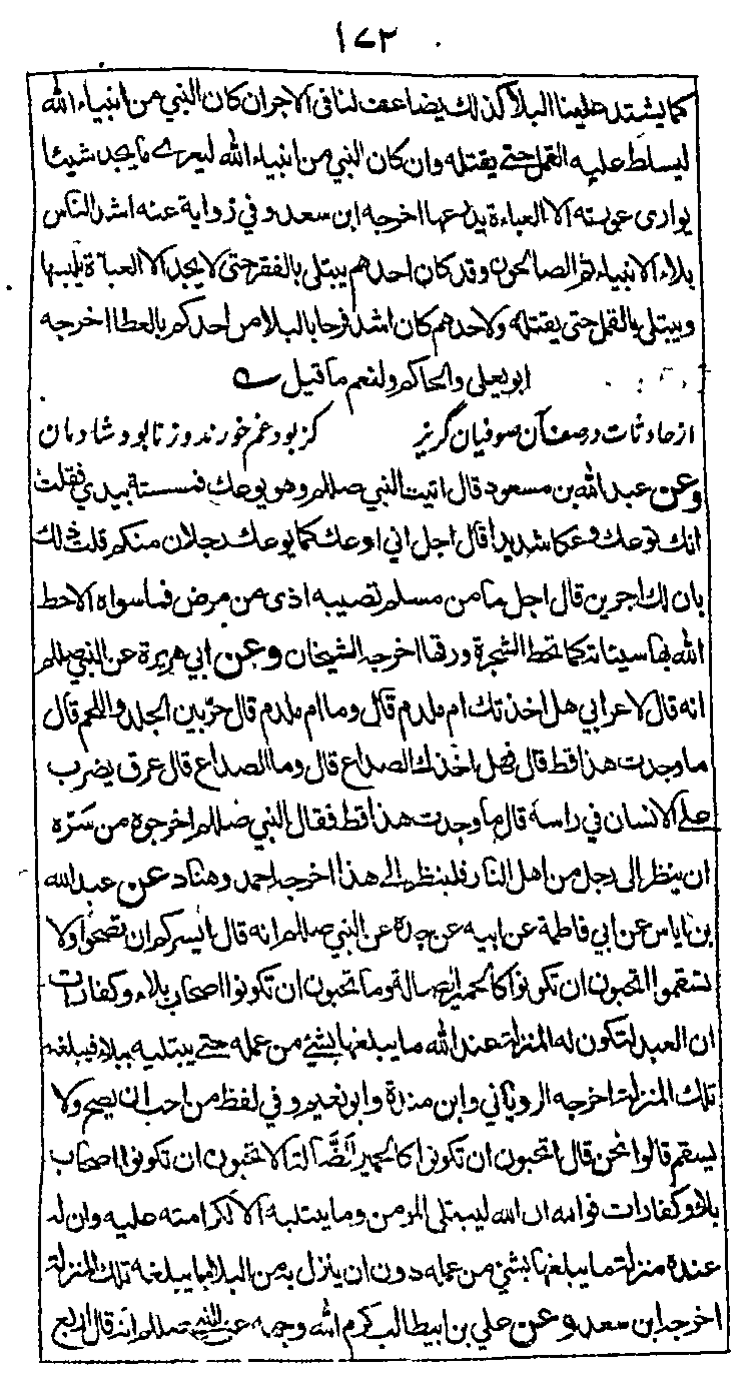 ١٧٢
كما يشتد علينا البلا كذلك يضاعف لنا فى الاجر ان كان النبي من انبياء الله
ليسلط عليه القمل حتے يقتله وان كان النبي من انبياء الله ليعرے ما يجد شيئا
يوارى عورته الا العباءة يدرعها اخرجه ابن سعد وفي رواية عنه اشد الناس
بلاء الانبياء ثم الصالحون وقد كان احدهم يبتلى بالفقر حتى لا يجد الا العباءة يلبسها
ويبتلى بالقمل حتى يقتله ولاحدهم كان اشد فرحا بالبلا من احدكم بالعطا اخرجه
ابو يعلى والحاكم ولنعم ما قيل ے
از حادثات در صف آن صوفيان گريز كز بود غم خورند وز نابود شادمان
وعن عبد الله بن مسعود قال اتيت النبي صللم وهو يوعك فمسسته بيدي فقلت
انك توعك وعكا شديدا قال اجل اني اوعك كما يوعك رجلان منكم قلت ذلك
بان لك اجرين قال اجل ما من مسلم تصيبه اذى من مرض فما سواه الا حط
الله بها سيئاته كما تحط الشجرة ورقها اخرجه الشيخان وعن ابي هريرة عن النبي صللم
انه قال لاعرابي هل اخذتك ام ملدم قال وما ام ملدم قال حر بين الجلد واللحم قال
ما وجدت هذا قط قال فهل اخذك الصداع قال وما الصداع قال عرق يضرب
علے الانسان في راسه قال ما وجدت هذا قط فقال النبي صللم اخرجوه من سَرّه
ان ينظر الى رجل من اهل النار فلينظر الى هذا اخرجه احمد وهناد عن عبد الله
بن اياس عن ابي فاطمة عن ابيه عن جده عن النبي صللم انه قال ايسركم ان تصحوا ولا
تسقموا اتحبون ان تكونوا كالحمير الصالة وما تحبون ان تكونوا اصحاب بلاء وكفارات
ان العبد لتكون له المنزلة عند الله ما يبلغها بشئ من عمله حتے يبتليه ببلاء فيبلغه
تلك المنزلة اخرجه الروياني وابن مندة وابو نعيم وفي لفظ من احب ان يصح ولا
يسقم قالوا نحن قال اتحبون ان تكونوا كالحمير الضَّالة الا تحبون ان تكونوا اصحاب
بلاء وكفارات فوالله ان الله ليبتلى المؤمن وما يبتليه الا لكرامته عليه وان له
عنده منزلة ما يبلغها بشئ من عمله دون ان ينزل به من البلا ما يبلغه تلك المنزلة
اخرجه ابن سعد وعن علي بن ابيطالب كرم الله وجهه عن النبي صللم انه قال اربع